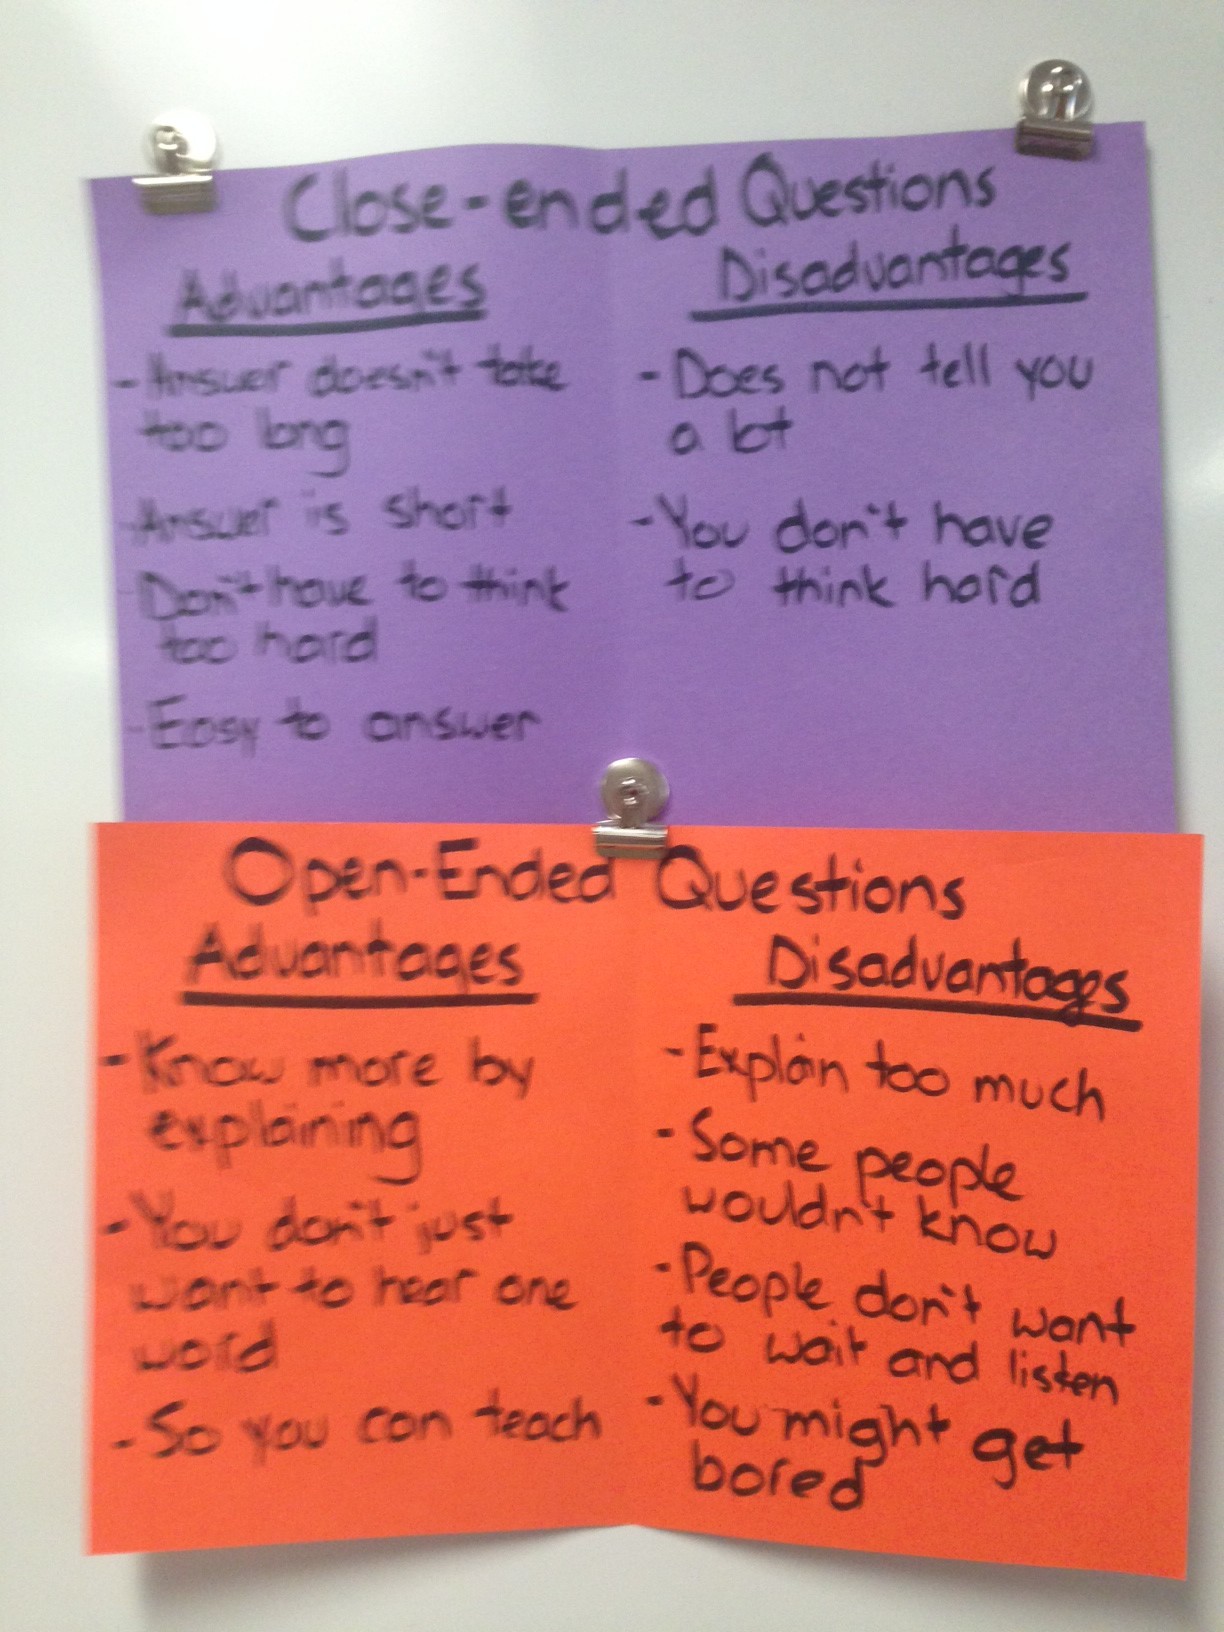 Close-ended Questions
Advantages
- Answer doesn't take
too long
- Answer is short
- Don't have to think
too hard
- Easy to answer
Disadvantages
- Does not tell you
a lot
- You don't have
to think hard
Open-Ended Questions
Advantages
- Know more by
explaining
- You don't just
want to hear one
word
- So you can teach
Disadvantages
- Explain too much
- Some people
wouldn't know
- People don't want
to wait and listen
- You might get
bored